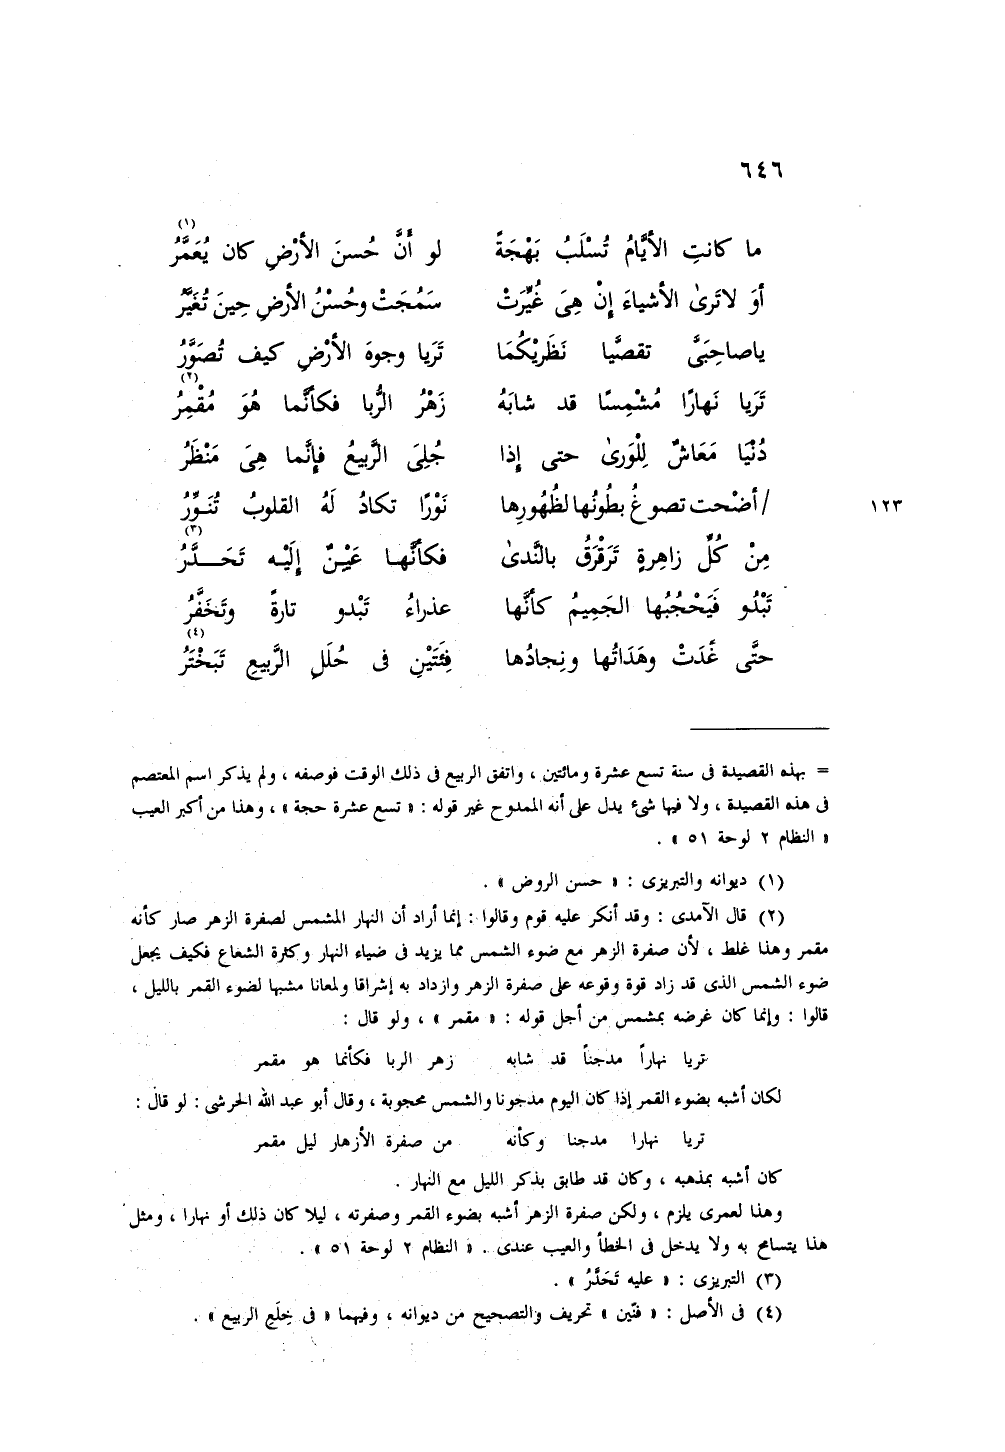 ٦٤٦
ما كانتِ الأيَّامُ تُسْلَبُ بَهْجَةً لو أَنَّ حُسنَ الأرْضِ كان يُعَمَّرُ (١)
أوَ لاتَرىٰ الأشياءَ إِنْ هِىَ غُيِّرَتْ سَمُجَتْ وحُسْنُ الأرضِ حِينَ تُغَيَّرُ
ياصاحِبَىَّ تقصَّيا نَظَرَيْكُمَا تَرَيا وجوهَ الأرْضِ كيف تُصَوَّرُ
تَرَيا نَهارًا مُشْمِسًا قد شابَهُ زَهْرُ الرُّبا فكأنَّما هُوَ مُقْمِرُ (٢)
دُنْيَا مَعَاشٌ لِلْوَرىٰ حتى إِذا جُلِىَ الرَّبيعُ فإِنَّما هِىَ مَنْظَرُ
١٢٣ / أضْحت تصوغُ بطُونُها لظُهُورِها نَوْرًا تكادُ لَهُ القلوبُ تُنَوِّرُ
مِنْ كُلِّ زاهِرةٍ تَرَقْرَقُ بالنَّدىٰ فكأنَّها عَيْنٌ إِلَيْه تَحَدَّرُ (٣)
تَبْدُو فَيَحْجُبُها الجَمِيمُ كأنَّها عذراءُ تَبْدو تارةً وتَخَفَّرُ
حتَّى غَدَتْ وهَدَاتُها ونِجادُها فِئَتَيْنِ فى حُلَلِ الرَّبيعِ تَبَخْتَرُ (٤)
= بهذه القصيدة فى سنة تسع عشرة ومائتين ، واتفق الربيع فى ذلك الوقت فوصفه ، ولم يذكر اسم المعتصم
فى هذه القصيدة ، ولا فيها شئ يدل على أنه الممدوح غير قوله : « تسع عشرة حجة » ، وهذا من أكبر العيب
« النظام ٢ لوحة ٥١ » .
(١) ديوانه والتبريزى : « حسن الروض » .
(٢) قال الآمدى : وقد أنكر عليه قوم وقالوا : إنما أراد أن النهار المشمس لصفرة الزهر صار كأنه
مقمر وهذا غلط ، لأن صفرة الزهر مع ضوء الشمس مما يزيد فى ضياء النهار وكثرة الشعاع فكيف يجعل
ضوء الشمس الذى قد زاد قوة وقوعه على صفرة الزهر وازداد به إشراقا ولمعانا مشبها لضوء القمر بالليل ،
قالوا : وإنما كان غرضه بمشمس من أجل قوله : « مقمر » ، ولو قال :
تريا نهاراً مدجناً قد شابه زهر الربا فكأنما هو مقمر
لكان أشبه بضوء القمر إذا كان اليوم مدجونا والشمس محجوبة ، وقال أبو عبد الله الحرشى : لو قال :
تريا نهارا مدجنا وكأنه من صفرة الأزهار ليل مقمر
كان أشبه بمذهبه ، وكان قد طابق بذكر الليل مع النهار .
وهذا لعمرى يلزم ، ولكن صفرة الزهر أشبه بضوء القمر وصفرته ، ليلا كان ذلك أو نهارا ، ومثل
هذا يتسامح به ولا يدخل فى الخطأ والعيب عندى . « النظام ٢ لوحة ٥١ » .
(٣) التبريزى : « عليه تَحَدَّرُ » .
(٤) فى الأصل : « فنّين » تحريف والتصحيح من ديوانه ، وفيهما « فى خِلَعِ الربيع » .